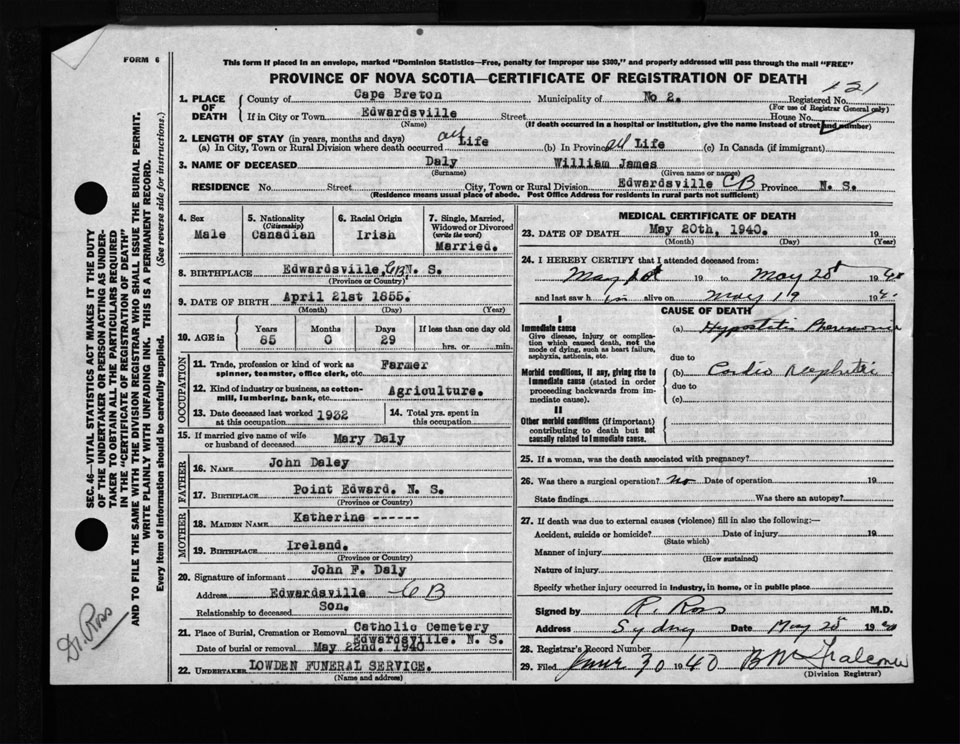 FORM 6
This form if placed in an envelope, marked "Dominion Statistics—Free, penalty for improper use $300," and properly addressed will pass through the mail "FREE"
PROVINCE OF NOVA SCOTIA—CERTIFICATE OF REGISTRATION OF DEATH
121
1. PLACE OF DEATH
County of Cape Breton Municipality of No 2. Registered No.
(For use of Registrar General only)
If in City or Town Edwardsville Street House No.
(Name) (If death occurred in a hospital or institution, give the name instead of street and number)
2. LENGTH OF STAY (in years, months and days)
(a) In City, Town or Rural Division where death occurred all Life (b) In Province all Life (c) In Canada (if immigrant)
3. NAME OF DECEASED Daly William James
(Surname) (Given name or names)
RESIDENCE No. Street City, Town or Rural Division Edwardsville CB Province N. S.
(Residence means usual place of abode. Post Office Address for residents in rural parts not sufficient)
4. Sex Male
5. Nationality (Citizenship) Canadian
6. Racial Origin Irish
7. Single, Married, Widowed or Divorced (write the word) Married.
8. BIRTHPLACE Edwardsville, CB, N. S.
(Province or Country)
9. DATE OF BIRTH April 21st 1855.
(Month) (Day) (Year)
10. AGE in Years Months Days If less than one day old
85 0 29 hrs. or min.
OCCUPATION
11. Trade, profession or kind of work as spinner, teamster, office clerk, etc. Farmer
12. Kind of industry or business, as cotton-mill, lumbering, bank, etc. Agriculture.
13. Date deceased last worked at this occupation 1932
14. Total yrs. spent in this occupation
15. If married give name of wife or husband of deceased Mary Daly
FATHER
16. NAME John Daley
17. BIRTHPLACE Point Edward. N. S.
(Province or Country)
MOTHER
18. MAIDEN NAME Katherine ------
19. BIRTHPLACE Ireland.
(Province or Country)
20. Signature of informant John F. Daly
Address Edwardsville CB
Relationship to deceased Son.
21. Place of Burial, Cremation or Removal Catholic Cemetery
Edwardsville. N. S.
Date of burial or removal May 22nd. 1940
22. UNDERTAKER LOWDEN FUNERAL SERVICE.
(Name and address)
MEDICAL CERTIFICATE OF DEATH
23. DATE OF DEATH May 20th, 1940. 19
(Month) (Day) (Year)
24. I HEREBY CERTIFY that I attended deceased from:
May 19 to May 19 40
and last saw him alive on May 19 19 40
CAUSE OF DEATH
I
Immediate cause
Give disease, injury or complication which caused death, not the mode of dying, such as heart failure, asphyxia, asthenia, etc.
(a) Hypostatic Pneumonia
due to
Morbid conditions, if any, giving rise to immediate cause (stated in order proceeding backwards from immediate cause).
(b) Cardio nephritis
due to
(c)
II
Other morbid conditions (if important) contributing to death but not causally related to immediate cause.
25. If a woman, was the death associated with pregnancy?
26. Was there a surgical operation? no Date of operation 19
State findings Was there an autopsy?
27. If death was due to external causes (violence) fill in also the following:—
Accident, suicide or homicide? Date of injury 19
(State which)
Manner of injury
(How sustained)
Nature of injury
Specify whether injury occurred in industry, in home, or in public place
Signed by R. Ross M.D.
Address Sydney Date May 19 40
28. Registrar's Record Number
29. Filed June 30 1940
(Division Registrar)
SEC. 46—VITAL STATISTICS ACT MAKES IT THE DUTY
OF THE UNDERTAKER OR PERSON ACTING AS UNDER-
TAKER TO OBTAIN ALL THE PARTICULARS REQUIRED
IN THE "CERTIFICATE OF REGISTRATION OF DEATH"
AND TO FILE THE SAME WITH THE DIVISION REGISTRAR WHO SHALL ISSUE THE BURIAL PERMIT.
WRITE PLAINLY WITH UNFADING INK. THIS IS A PERMANENT RECORD.
Every item of information should be carefully supplied. (See reverse side for instructions.)
Dr. Ross